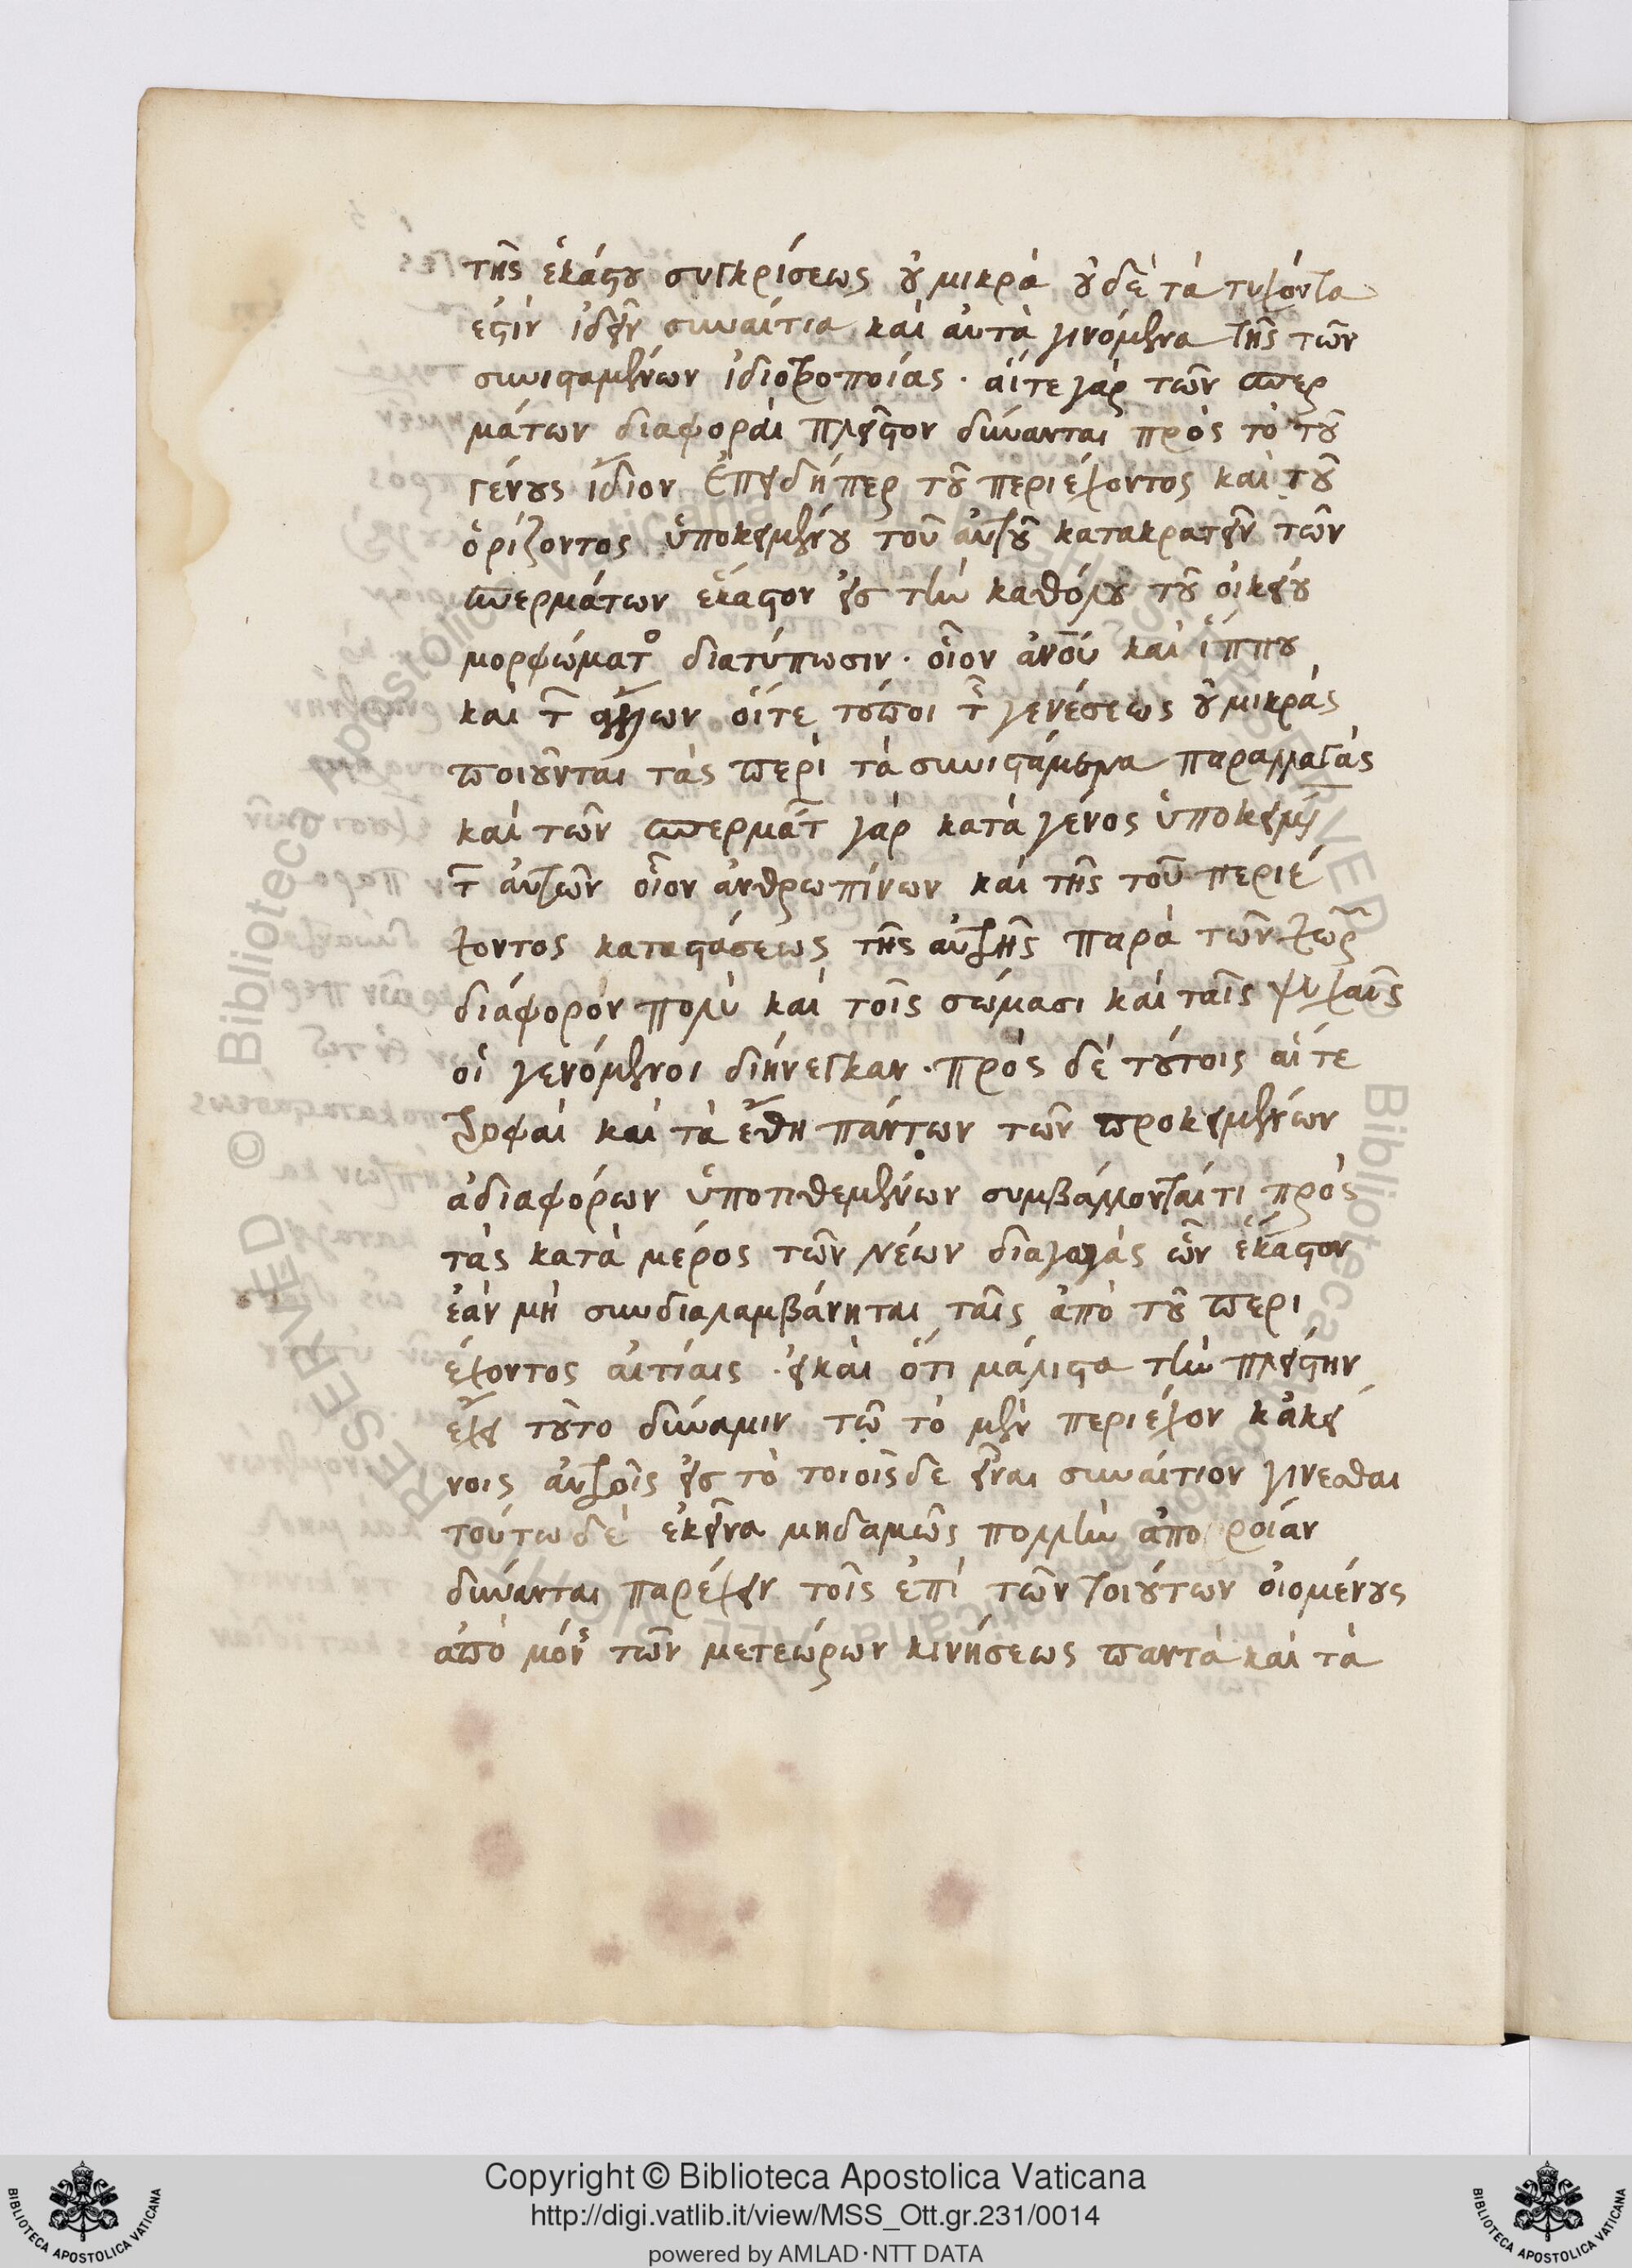 τῆς ἑκάστου συγκρίσεως οὐ μικρὰ οὐδὲ τὰ τυχόντα
ἐστὶν ἰδεῖν συναίτια καὶ αὐτὰ γινόμενα τῆς τῶν
συνισταμένων ἰδιοτροποίας · αἵτε γὰρ τῶν σπερ
μάτων διαφοραὶ πλεῖστον δύνανται πρὸς τὸ τοῦ
γένους ἴδιον ἐπειδήπερ τοῦ περιέχοντος καὶ τοῦ
ὁρίζοντος ὑποκειμένου τοῦ αὐτοῦ κατακρατεῖν τῶν
σπερμάτων ἕκαστον εἰς τὴν καθόλου τοῦ οἰκείου
μορφώματο διατύπωσιν · οἷον ἀνου καὶ ἵππου
καὶ τ ἄλλων οἵτε τόποι τ γενέσεως οὐ μικρὰς
ποιοῦνται τὰς περὶ τὰ συνιστάμενα παραλλαγὰς
καὶ τῶν σπερμάτ γὰρ κατὰ γένος ὑποκειμ
τ αὐτῶν οἷον ἀνθρωπίνων καὶ τῆς τοῦ περιέ
χοντος καταστάσεως τῆς αὐτῆς παρὰ τῶν χωρ
διάφορον πολὺ καὶ τοῖς σώμασι καὶ ταῖς ψυχαῖς
οἱ γενόμενοι διήνεγκαν · πρὸς δὲ τούτοις αἵτε
τροφαὶ καὶ τὰ ἔθη πάντων τῶν προκειμένων
ἀδιαφόρων ὑποτιθεμένων συμβάλλονταί τι πρὸς
τὰς κατὰ μέρος τῶν νέων διαγωγὰς ὧν ἕκαστον
ἐὰν μὴ συνδιαλαμβάνηται ταῖς ἀπὸ τοῦ περι
έχοντος αἰτίαις · εἰ καὶ ὅτι μάλιστα τὴν πλείστην
ἔχει τοῦτο δύναμιν τῷ τὸ μὲν περιέχον κἀκεί
νοις αὐτοῖς εἰς τὸ τοιοῖσδε εἶναι συναίτιον γίνεσθαι
τούτω δὲ ἐκεῖνα μηδαμῶς πολλὴν ἀπορροίαν
δύνανται παρέχειν τοῖς ἐπὶ τῶν τοιούτων οἰομένους
ἀπὸ μόν τῶν μετεώρων κινήσεως παντὰ καὶ τὰ
Copyright © Biblioteca Apostolica Vaticana
http://digi.vatlib.it/view/MSS_Ott.gr.231/0014
powered by AMLAD·NTT DATA